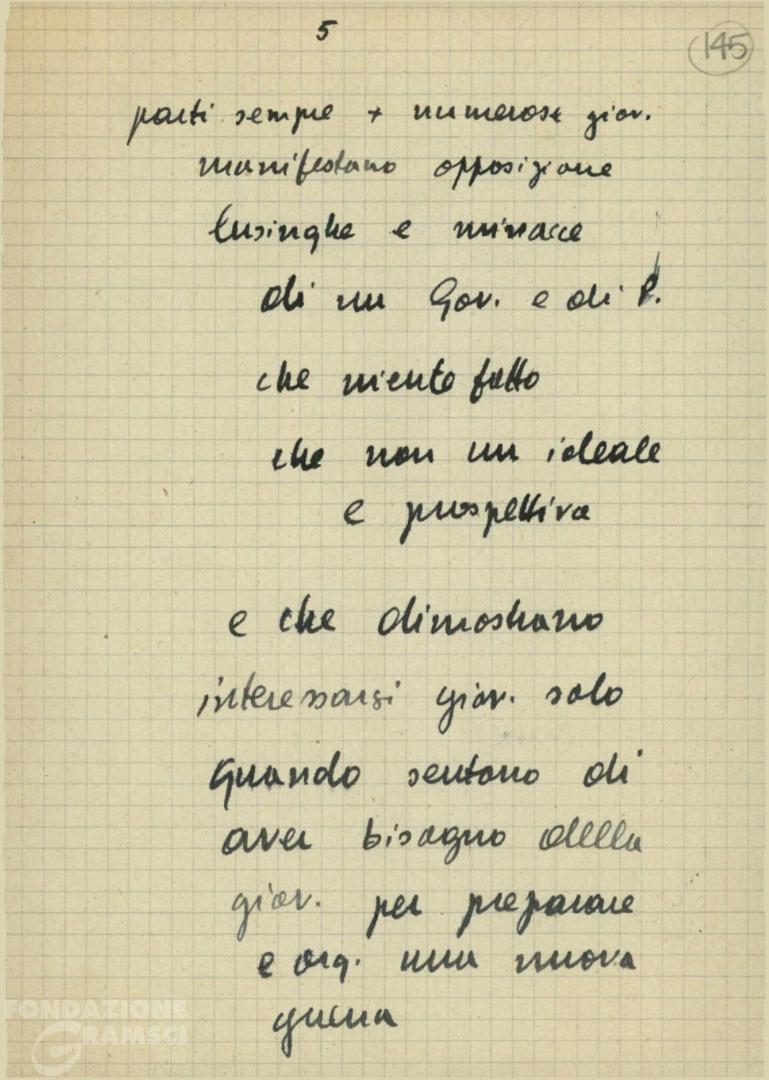 5
145
parti sempre + numerose giov.
manifestano opposizione
lusinghe e minacce
di un Gov. e di P.
che niente fatto
che non un ideale
e prospettiva
e che dimostrano
interessarsi giov. solo
quando sentono di
aver bisogno della
giov. per preparare
e org. una nuova
guerra
FONDAZIONE
GRAMSCI